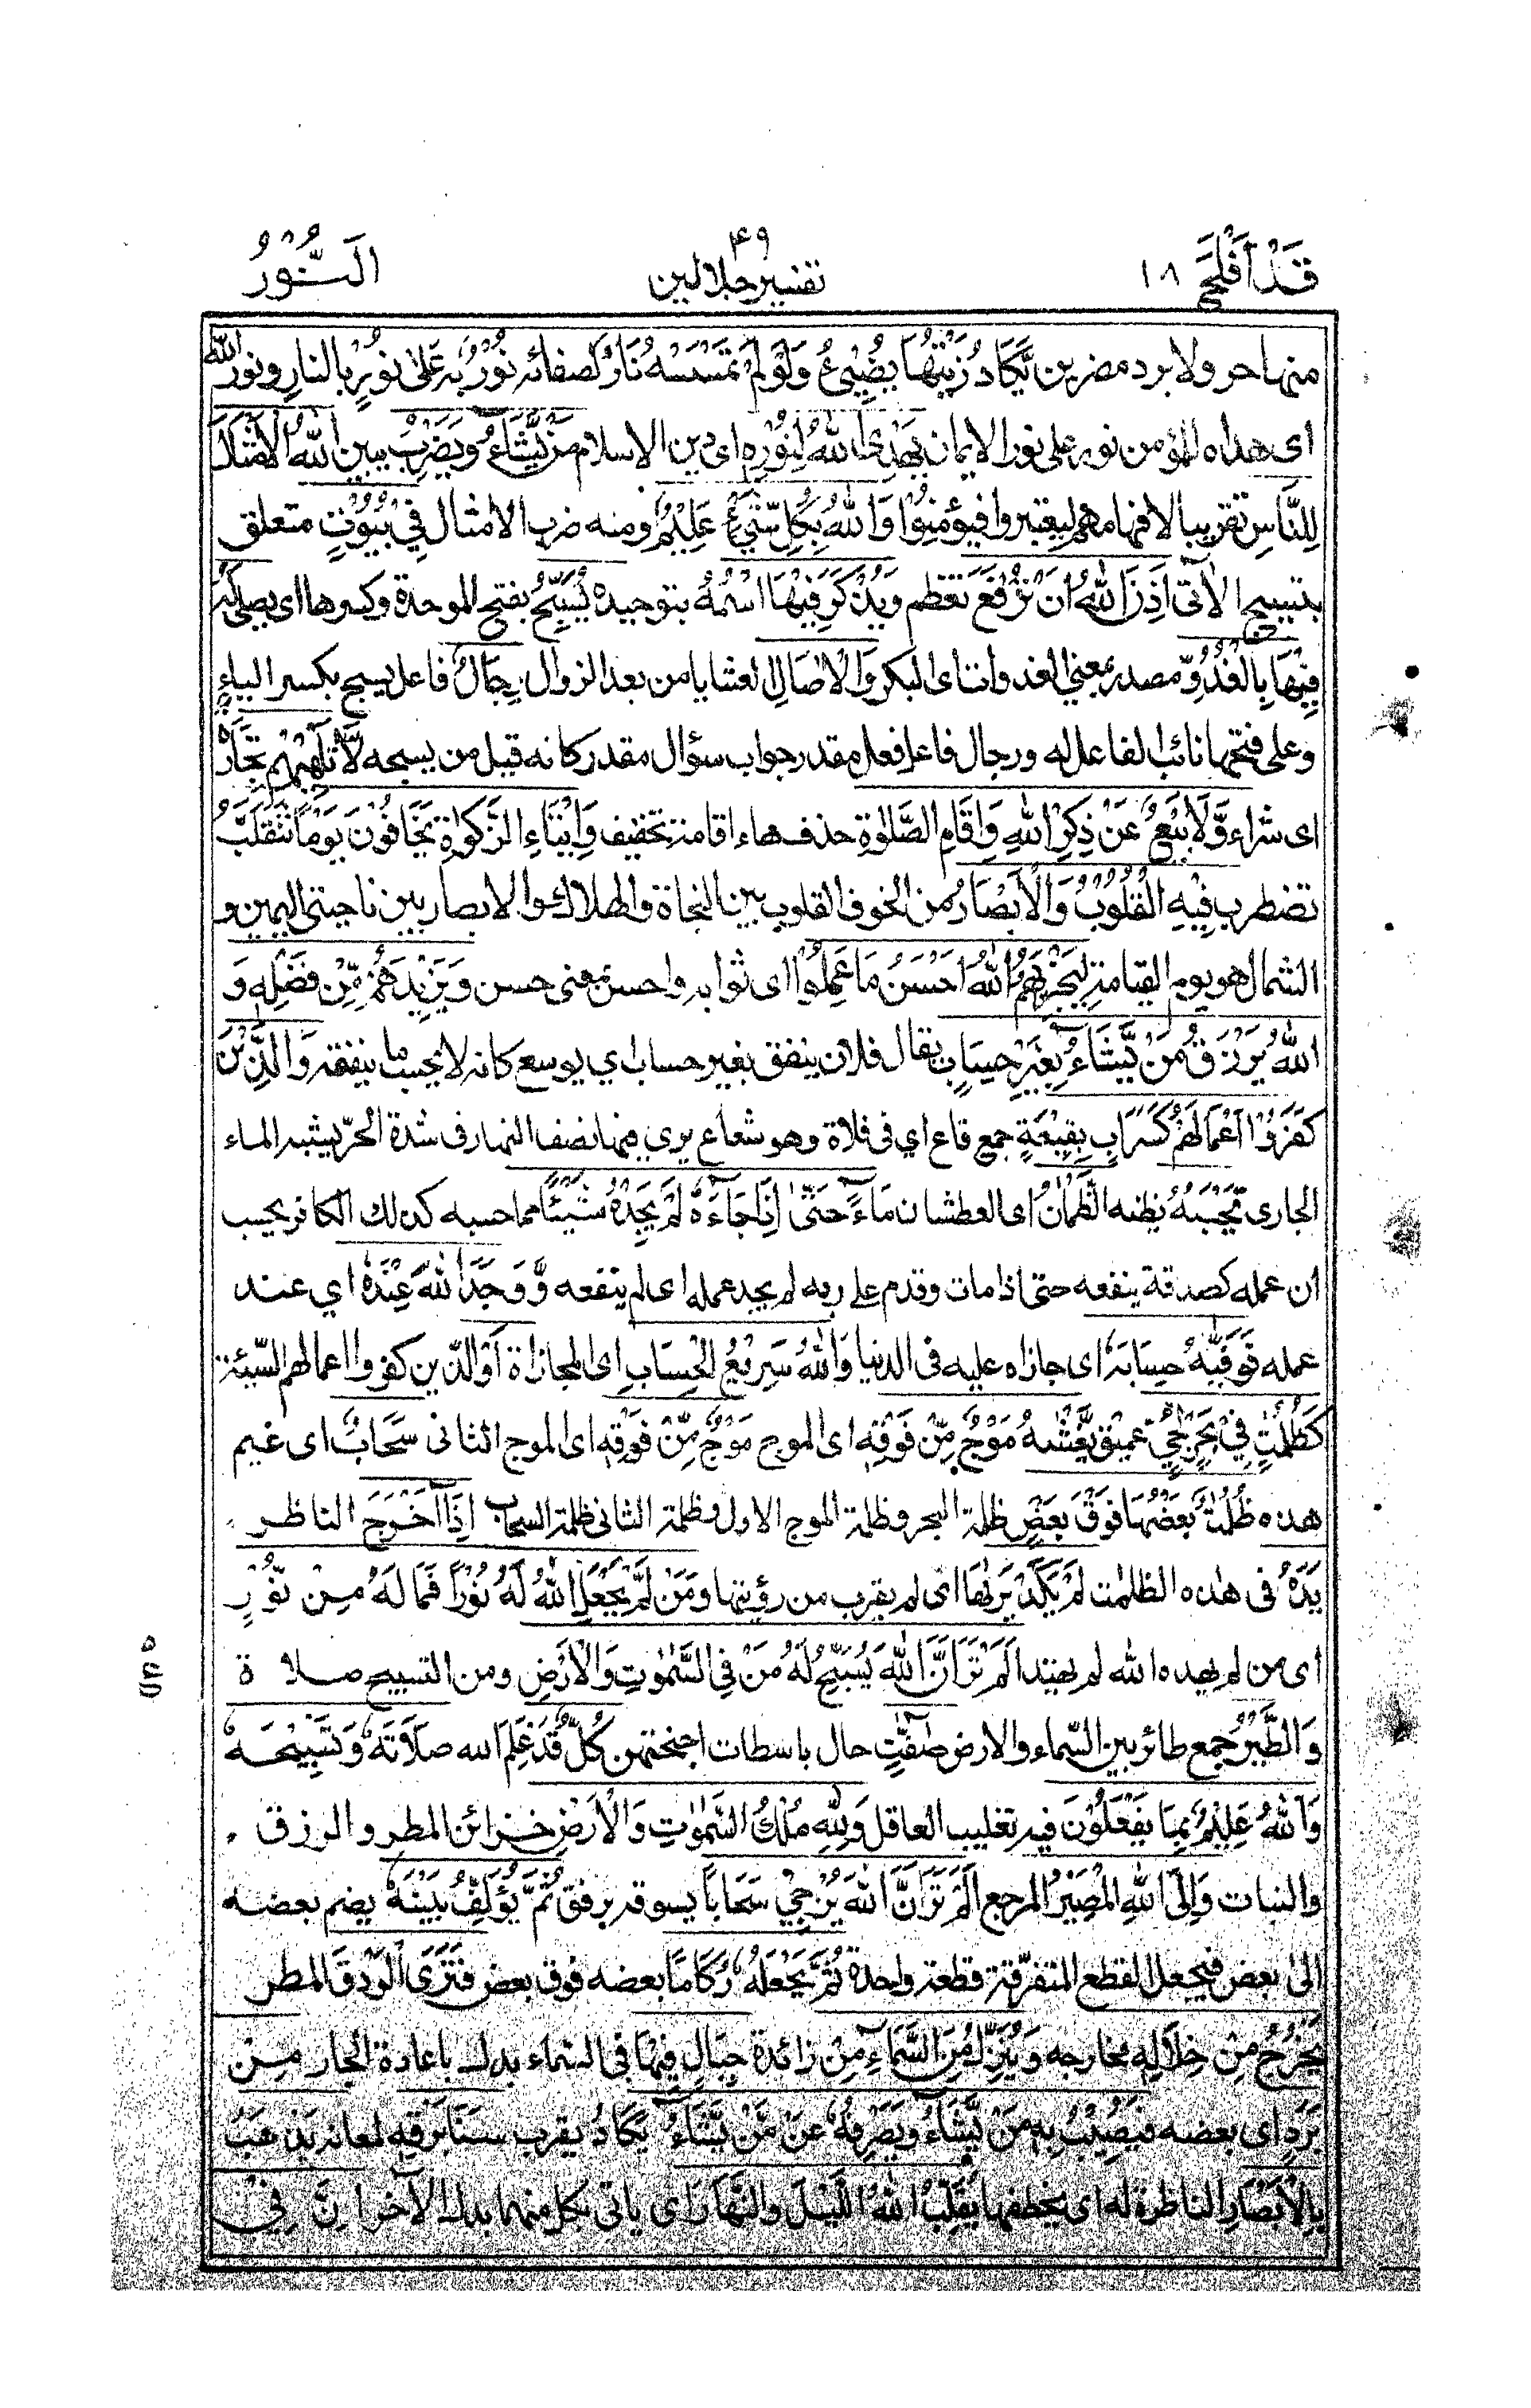 قَدْ اَفْلَحَ ١٨
٤٩
تفسیر جلالین
اَلنُّوْرُ
منها حر ولا برد مضرين يَّكَادُ زَيْتُهَا يُضِيْٓئُ وَلَوْ لَمْ تَمْسَسْهُ نَارٌ لصفائه نُوْرٌ به عَلٰى نُوْرٍ بالنار ونور الله
اى هداه المؤمن نور على نور الايمان يَهْدِى اللّٰهُ لِنُوْرِهٖ اى دين الاسلام مَنْ يَّشَآءُ وَيَضْرِبُ يبين اللّٰهُ الْاَمْثَالَ
لِلنَّاسِ تقريبا لافهامهم ليعتبروا فيؤمنوا وَاللّٰهُ بِكُلِّ شَيْءٍ عَلِيْمٌ ومنه ضرب الامثال فِيْ بُيُوْتٍ متعلق
بتسبيح الآتى اَذِنَ اللّٰهُ اَنْ تُرْفَعَ تعظم وَيُذْكَرَ فِيْهَا اسْمُهٗ بتوحيده يُسَبِّحُ بفتح الموحدة وكسرها اى يصلى لَهٗ
فِيْهَا بِالْغُدُوِّ مصدر بمعنى الغدوات اى البكر وَالْاٰصَالِ العشايا من بعد الزوال رِجَالٌ فاعل يسبح بكسر الباء
وعلى فتحها نائب الفاعل له ورجال فاعل فعل مقدر جواب سؤال مقدر كانه قيل من يسبحه لَّا تُلْهِيْهِمْ تِجَارَةٌ
اى شراء وَّلَا بَيْعٌ عَنْ ذِكْرِ اللّٰهِ وَاِقَامِ الصَّلٰوةِ حذف هاء اقامة تخفيف وَاِيْتَاءِ الزَّكٰوةِ يَخَافُوْنَ يَوْمًا تَتَقَلَّبُ
تضطرب فِيْهِ الْقُلُوْبُ وَالْاَبْصَارُ من الخوف القلوب بين النجاة والهلاك والابصار بين ناحيتى اليمين و
الشمال هو يوم القيامة لِيَجْزِيَهُمُ اللّٰهُ اَحْسَنَ مَا عَمِلُوْا اى ثوابه واحسن بمعنى حسن وَيَزِيْدَهُمْ مِّنْ فَضْلِهٖ وَ
اللّٰهُ يَرْزُقُ مَنْ يَّشَآءُ بِغَيْرِ حِسَابٍ يقال فلان ينفق بغير حساب اي يوسع كانه لا يحسب ما ينفقه وَالَّذِيْنَ
كَفَرُوْٓا اَعْمَالُهُمْ كَسَرَابٍۭ بِقِيْعَةٍ جمع قاع اي فى فلاة وهو شعاع يري فيها نصف النهار فى شدة الحر يشبه الماء
الجارى يَّحْسَبُهُ يظنه الظَّمْاٰنُ اى العطشان مَآءً حَتّٰى اِذَا جَآءَهٗ لَمْ يَجِدْهُ شَيْئًا مما حسبه كذلك الكافر يحسب
ان عمله كصدقة ينفعه حتى اذا مات وقدم على ربه لم يجد عمله اى لم ينفعه وَّوَجَدَ اللّٰهَ عِنْدَهٗ اي عند
عمله فَوَفّٰىهُ حِسَابَهٗ اى جازاه عليه فى الدنيا وَاللّٰهُ سَرِيْعُ الْحِسَابِ اى المجازاة اَوْ الذين كفروا اعمالهم السيئة
كَظُلُمٰتٍ فِيْ بَحْرٍ لُّجِّيٍّ عميق يَّغْشٰىهُ مَوْجٌ مِّنْ فَوْقِهٖ اى الموج مَوْجٌ مِّنْ فَوْقِهٖ اى الموج الثانى سَحَابٌ اى غيم
هذه ظُلُمٰتٌۢ بَعْضُهَا فَوْقَ بَعْضٍ ظلمة البحر وظلمة الموج الاول وظلمة الثانى ظلمة السحاب اِذَآ اَخْرَجَ الناظر
يَدَهٗ فى هذه الظلمات لَمْ يَكَدْ يَرٰىهَا اى لم يقرب من رؤيتها وَمَنْ لَّمْ يَجْعَلِ اللّٰهُ لَهٗ نُوْرًا فَمَا لَهٗ مِنْ نُّوْرٍ
اى من لم يهده الله لم يهتد اَلَمْ تَرَ اَنَّ اللّٰهَ يُسَبِّحُ لَهٗ مَنْ فِى السَّمٰوٰتِ وَالْاَرْضِ ومن التسبيح صلاة
وَالطَّيْرُ جمع طائر بين السماء والارض صٰٓفّٰتٍ حال باسطات اجنحتهن كُلٌّ قَدْ عَلِمَ الله صَلَاتَهٗ وَتَسْبِيْحَهٗ
وَاللّٰهُ عَلِيْمٌۢ بِمَا يَفْعَلُوْنَ فيه تغليب العاقل وَلِلّٰهِ مُلْكُ السَّمٰوٰتِ وَالْاَرْضِ خزائن المطر والرزق
والنبات وَاِلَى اللّٰهِ الْمَصِيْرُ المرجع اَلَمْ تَرَ اَنَّ اللّٰهَ يُزْجِيْ سَحَابًا يسوقه برفق ثُمَّ يُؤَلِّفُ بَيْنَهٗ يضم بعضه
الى بعض فيجعل القطع المتفرقة قطعة واحدة ثُمَّ يَجْعَلُهٗ رُكَامًا بعضه فوق بعض فَتَرَى الْوَدْقَ المطر
يَخْرُجُ مِنْ خِلَالِهٖ مخارجه وَيُنَزِّلُ مِنَ السَّمَآءِ مِنْ زائدة جِبَالٍ فِيْهَا فى السماء بدل باعادة الجار مِنْۢ
بَرَدٍ اى بعضه فَيُصِيْبُ بِهٖ مَنْ يَّشَآءُ وَيَصْرِفُهٗ عَنْ مَّنْ يَّشَآءُ يَكَادُ يقرب سَنَا بَرْقِهٖ لمعانه يَذْهَبُ
بِالْاَبْصَارِ الناظرة له اى يخطفها يُقَلِّبُ اللّٰهُ الَّيْلَ وَالنَّهَارَ اى ياتى بكل منهما بدل الآخر اِنَّ فِيْ